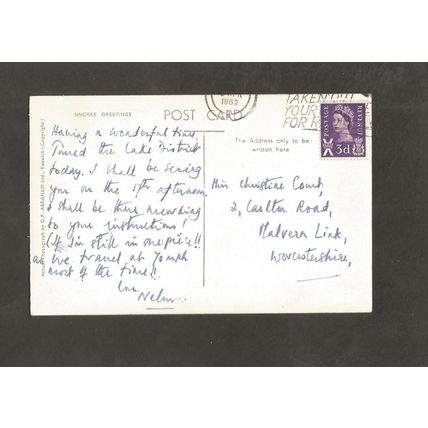 SINCERE GREETINGS
POST CARD
1962
TAKEN OUT
YOUR
FOR
POSTAGE
REVENUE
3d
The Address only to be
written here
Having a wonderful time.
Toured the Lake District
today. I shall be seeing
you on the 17th afternoon.
I shall be there according
to your instructions!
(If I'm still in one piece!!
as we travel at 70 mph
most of the time!!
Love
Miss Christine Comb,
2, Carlton Road,
Malvern Link,
Worcestershire,
Actual Photograph by G.P. ABRAHAM Ltd., Keswick (Copyright)